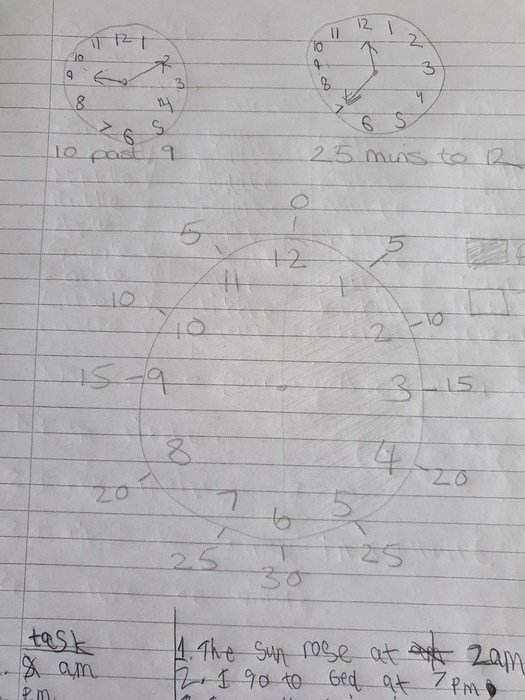 11 12 1
10 2
9 3
8 4
7 6 5
10 past 9
12 1
11 2
10
9 3
8 4
7 6 5
25 mins to 12
0
5 12 5
11 1
10 10 2 10
15 9 3 15
8 4
20 20
7 6 5
25 25
30
task
am
pm
1. The sun rose at 2am
2. I go to bed at 7pm